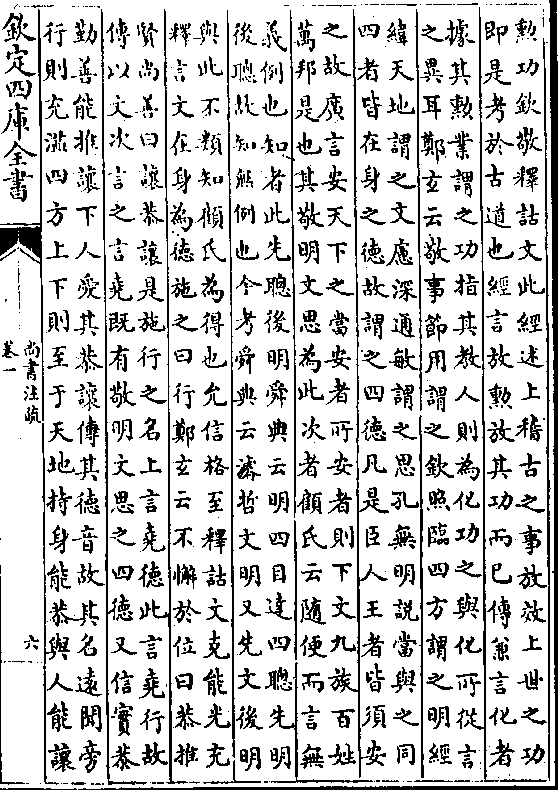 勲功欽敬釋詁文此經述上稽古之事放效上世之功
即是考於古道也經言放勲放其功而已傳兼言化者
據其勲業謂之功指其教人則為化功之與化所從言
之異耳鄭玄云敬事節用謂之欽照臨四方謂之明經
緯天地謂之文慮深通敏謂之思孔無明説當與之同
四者皆在身之德故謂之四德凡是臣人王者皆須安
之故廣言安天下之當安者所安者則下文九族百姓
萬邦是也其敬明文思為此次者顧氏云隨便而言無
義例也知者此先聰後明舜典云明四目達四聰先明
後聰故知無例也今考舜典云濬哲文明又先文後明
與此不類知顧氏為得也允信格至釋詁文克能光充
釋言文在身為德施之曰行鄭玄云不懈於位曰恭推
賢尚善曰讓恭讓是施行之名上言堯德此言堯行故
傳以文次言之言堯既有敬明文思之四德又信實恭
勤善能推讓下人愛其恭讓傳其德音故其名遠聞旁
行則充溢四方上下則至于天地持身能恭與人能讓
欽定四庫全書
尚書注疏
卷一
六